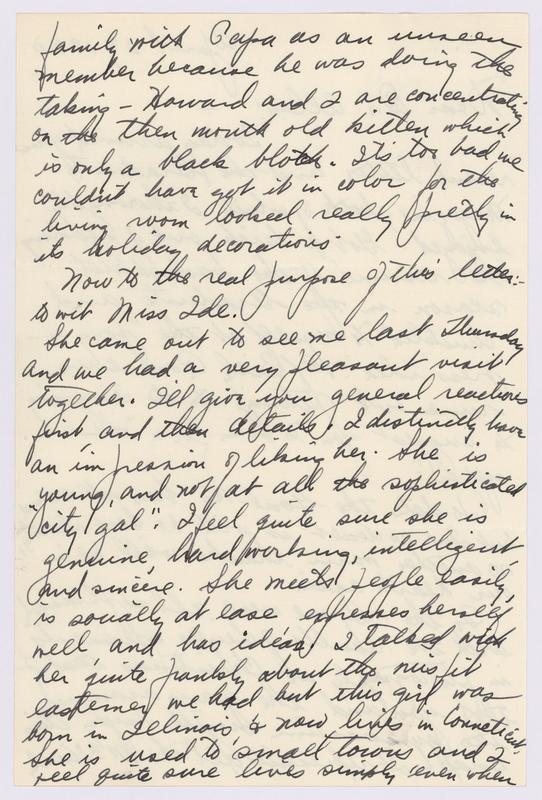 family with Papa as an unseen
member because he was doing the
taking - Howard and I are concentrating
on the then month old kitten which
is only a black blotch. It's too bad we
couldn't have got it in color for the
living room looked really pretty in
its holiday decorations.
Now to the real purpose of this letter:-
to wit Miss Ide.
She came out to see me last Thursday
and we had a very pleasant visit
together. I'll give you general reactions
first, and then details. I distinctly have
an impression of liking her. She is
young, and not at all the sophisticated
"city gal". I feel quite sure she is
genuine, hard working, intelligent,
and sincere. She meets people easily,
is socially at ease expresses herself
well and has ideas. I talked with
her quite frankly about the misfit
easterner we had but this girl was
born in Illinois, & now lives in Connecticut.
She is used to small towns and I
feel quite sure lives simply even when